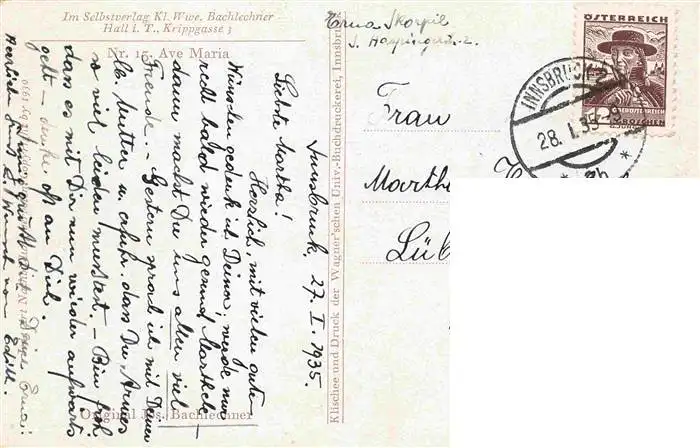 Im Selbstverlag Kl. Wwe. Bachlechner
Hall i. T., Krippgasse 3
Nr. 15. Ave Maria
Erna Skorpil
Innsbruck, 27. I. 1935.
Liebste Martha!
Herzlich, mit vielen guten
Wünschen gedenk ich Deiner, werde nur
recht bald wieder gesund, Marthele
dann machst Du uns allen viel
Freude. - Gestern sprach ich mit Deiner
lb. Mutter u. erfuhr, dass Du Armes
so viel leiden musstest. - Bin froh
dass es mit Dir nun wieder aufwärts
geht - denke oft an Dich.
Deine Erna.
Herzlichen Gruß von Edith.
Original Jos. Bachlechner
Klischee und Druck der Wagner'schen Univ.-Buchdruckerei, Innsbruck
Frau
Marth
Lüb
ÖSTERREICH
GROSCHEN
INNSBRUCK 2
28. I. 35